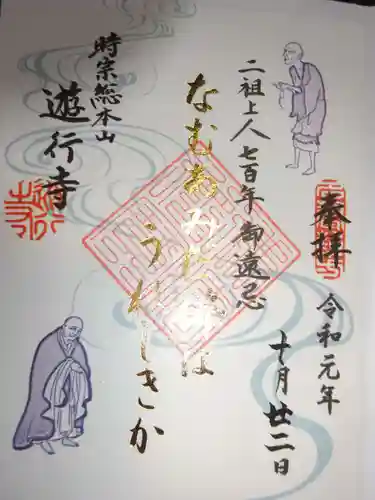 奉拝
令和元年
十月廿二日
二祖上人七百年御遠忌
なむあみだぶは
うれしきか
時宗総本山
遊行寺